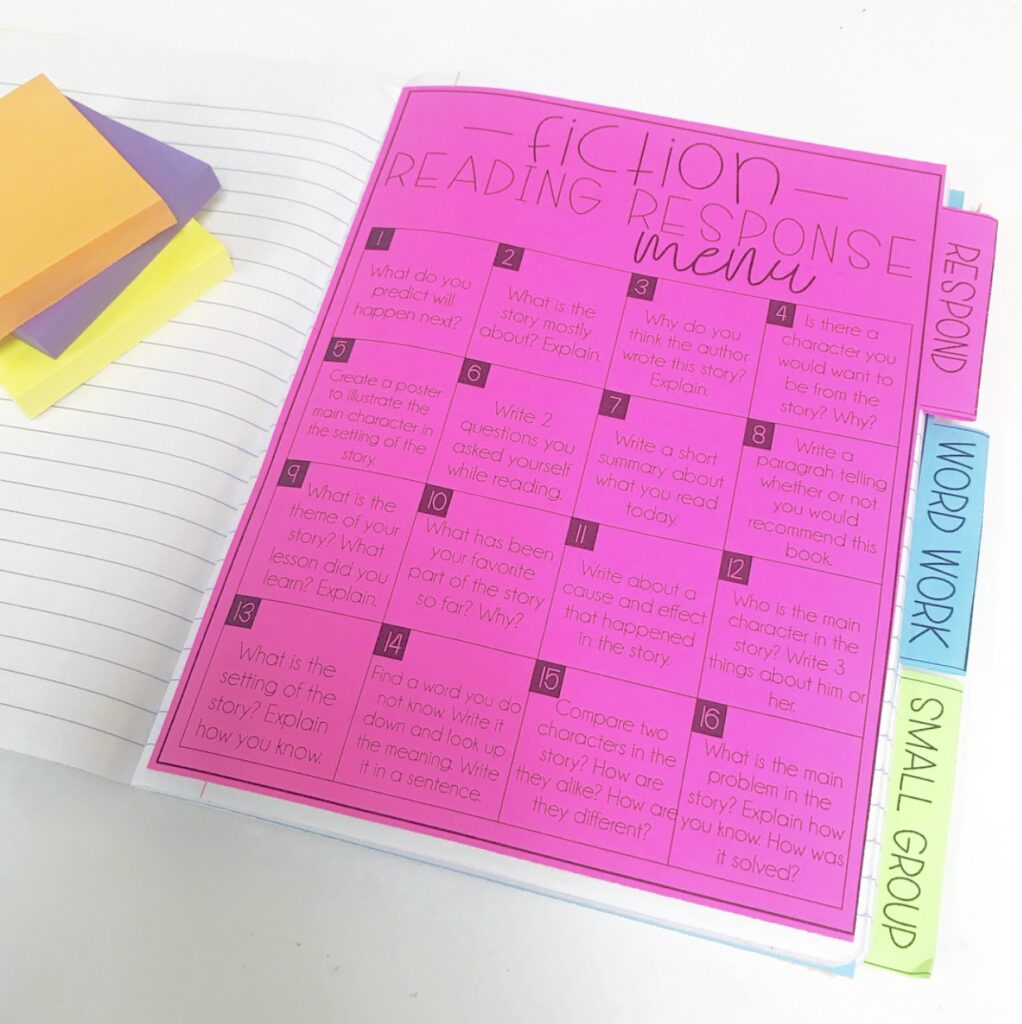 fiction
READING RESPONSE
menu
1
What do you
predict will
happen next?
2
What is the
story mostly
about? Explain.
3
Why do you
think the author
wrote this story?
Explain.
4
Is there a
character you
would want to
be from the
story? Why?
5
Create a poster
to illustrate the
main character in
the setting of the
story.
6
Write 2
questions you
asked yourself
while reading.
7
Write a short
summary about
what you read
today.
8
Write a
paragrah telling
whether or not
you would
recommend this
book.
9
What is the
theme of your
story? What
lesson did you
learn? Explain.
10
What has been
your favorite
part of the story
so far? Why?
11
Write about a
cause and effect
that happened
in the story.
12
Who is the main
character in the
story? Write 3
things about him or
her.
13
What is the
setting of the
story? Explain
how you know.
14
Find a word you do
not know. Write it
down and look up
the meaning. Write
it in a sentence.
15
Compare two
characters in the
story? How are
they alike? How are
they different?
16
What is the main
problem in the
story? Explain how
you know. How was
it solved?
RESPOND
WORD WORK
SMALL GROUP